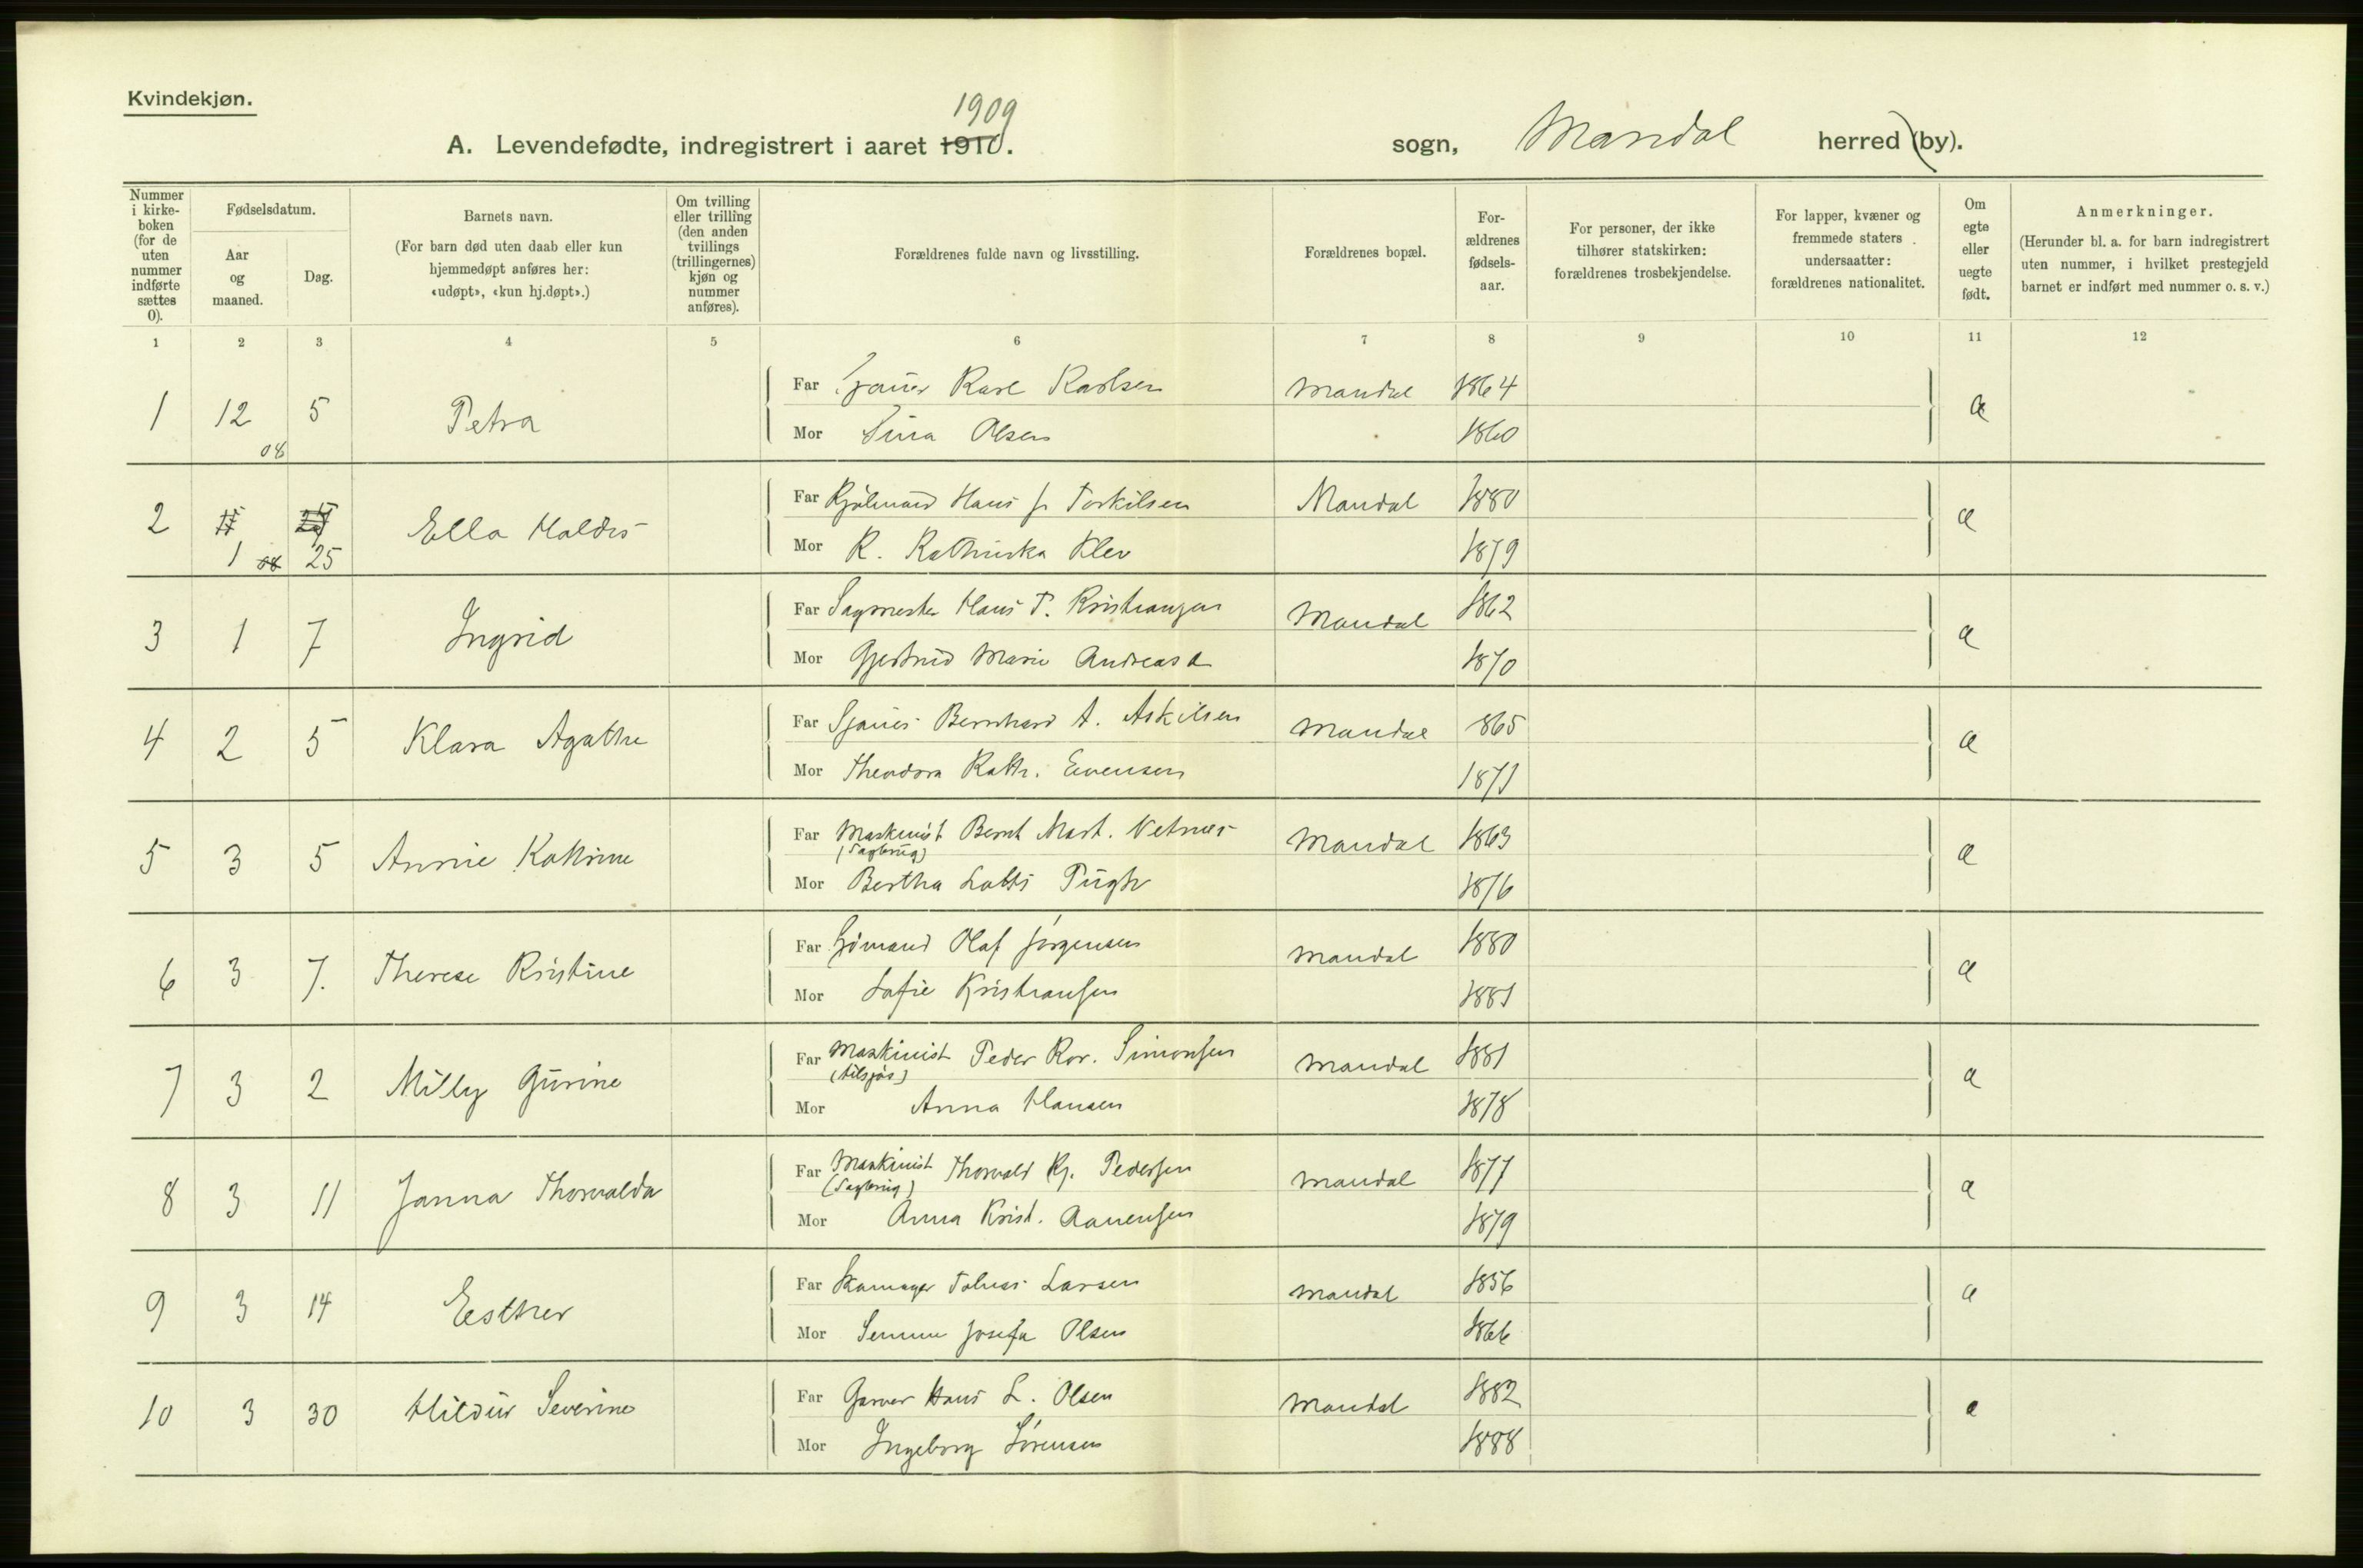 Kvindekjøn.
1909
A. Levendefødte, indregistrert i aaret 1910.
sogn, Mandal herred (by).
Nummer i kirke-boken (for de uten nummer indførte sættes 0).
Fødselsdatum.
Aar og maaned.
Dag.
Barnets navn.
(For barn død uten daab eller kun hjemmedøpt anføres her: «udøpt», «kun hj.døpt».)
Om tvilling eller trilling (den anden tvillings (trillingernes) kjøn og nummer anføres).
Forældrenes fulde navn og livsstilling.
Forældrenes bopæl.
For-ældrenes fødsels-aar.
For personer, der ikke tilhører statskirken: forældrenes trosbekjendelse.
For lapper, kvæner og fremmede staters undersaatter: forældrenes nationalitet.
Om egte eller uegte født.
Anmerkninger.
(Herunder bl. a. for barn indregistrert uten nummer, i hvilket prestegjeld barnet er indført med nummer o. s. v.)
1 2 3 4 5 6 7 8 9 10 11 12
Far Karl Karlsen Mandal 1864
1 12 5 Petra
08
Mor Sina Olsen 1860
Far Hans Torkilsen Mandal 1880
2 Ella Haldis
1 08 25
Mor R. Kathinka Klev 1879
Far Sagmester Hans T. Kristiansen Mandal 1862
3 1 7 Ingrid
Mor Gjertrud Marie Andreas 1870
Far Bernhard A. Askilsen Mandal 865
4 2 5 Klara Agathe
Mor Theodora Kath. Evensen 1871
Far Maskinist Bernt Mart. Mandal 1863
(Sagbrug)
5 3 5 Annie Katrine
Mor Bertha Lotti Pugh 1876
Far Sjømand Olaf Jørgensen Mandal 1880
6 3 7. Therese Kristine
Mor Sofie Kristiansen 1881
Far Maskinist Peder Kor. Simonsen Mandal 1881
(tilsjøs)
7 3 2 Milly Gurine
Mor Anna Hansen 1878
Far Maskinist Thorvald Kr. Pedersen Mandal 1877
(Sagbrug)
8 3 11 Janna Thorvalda
Mor Anna Krist. Aanensen 1879
Far Skomager Larsen Mandal 1856
9 3 14 Eesther
Mor Josefa Olsen 1866
Far Garver Hans L. Olsen Mandal 1882
10 3 30 Hildur Severine
Mor Ingeborg Sørensen 1888